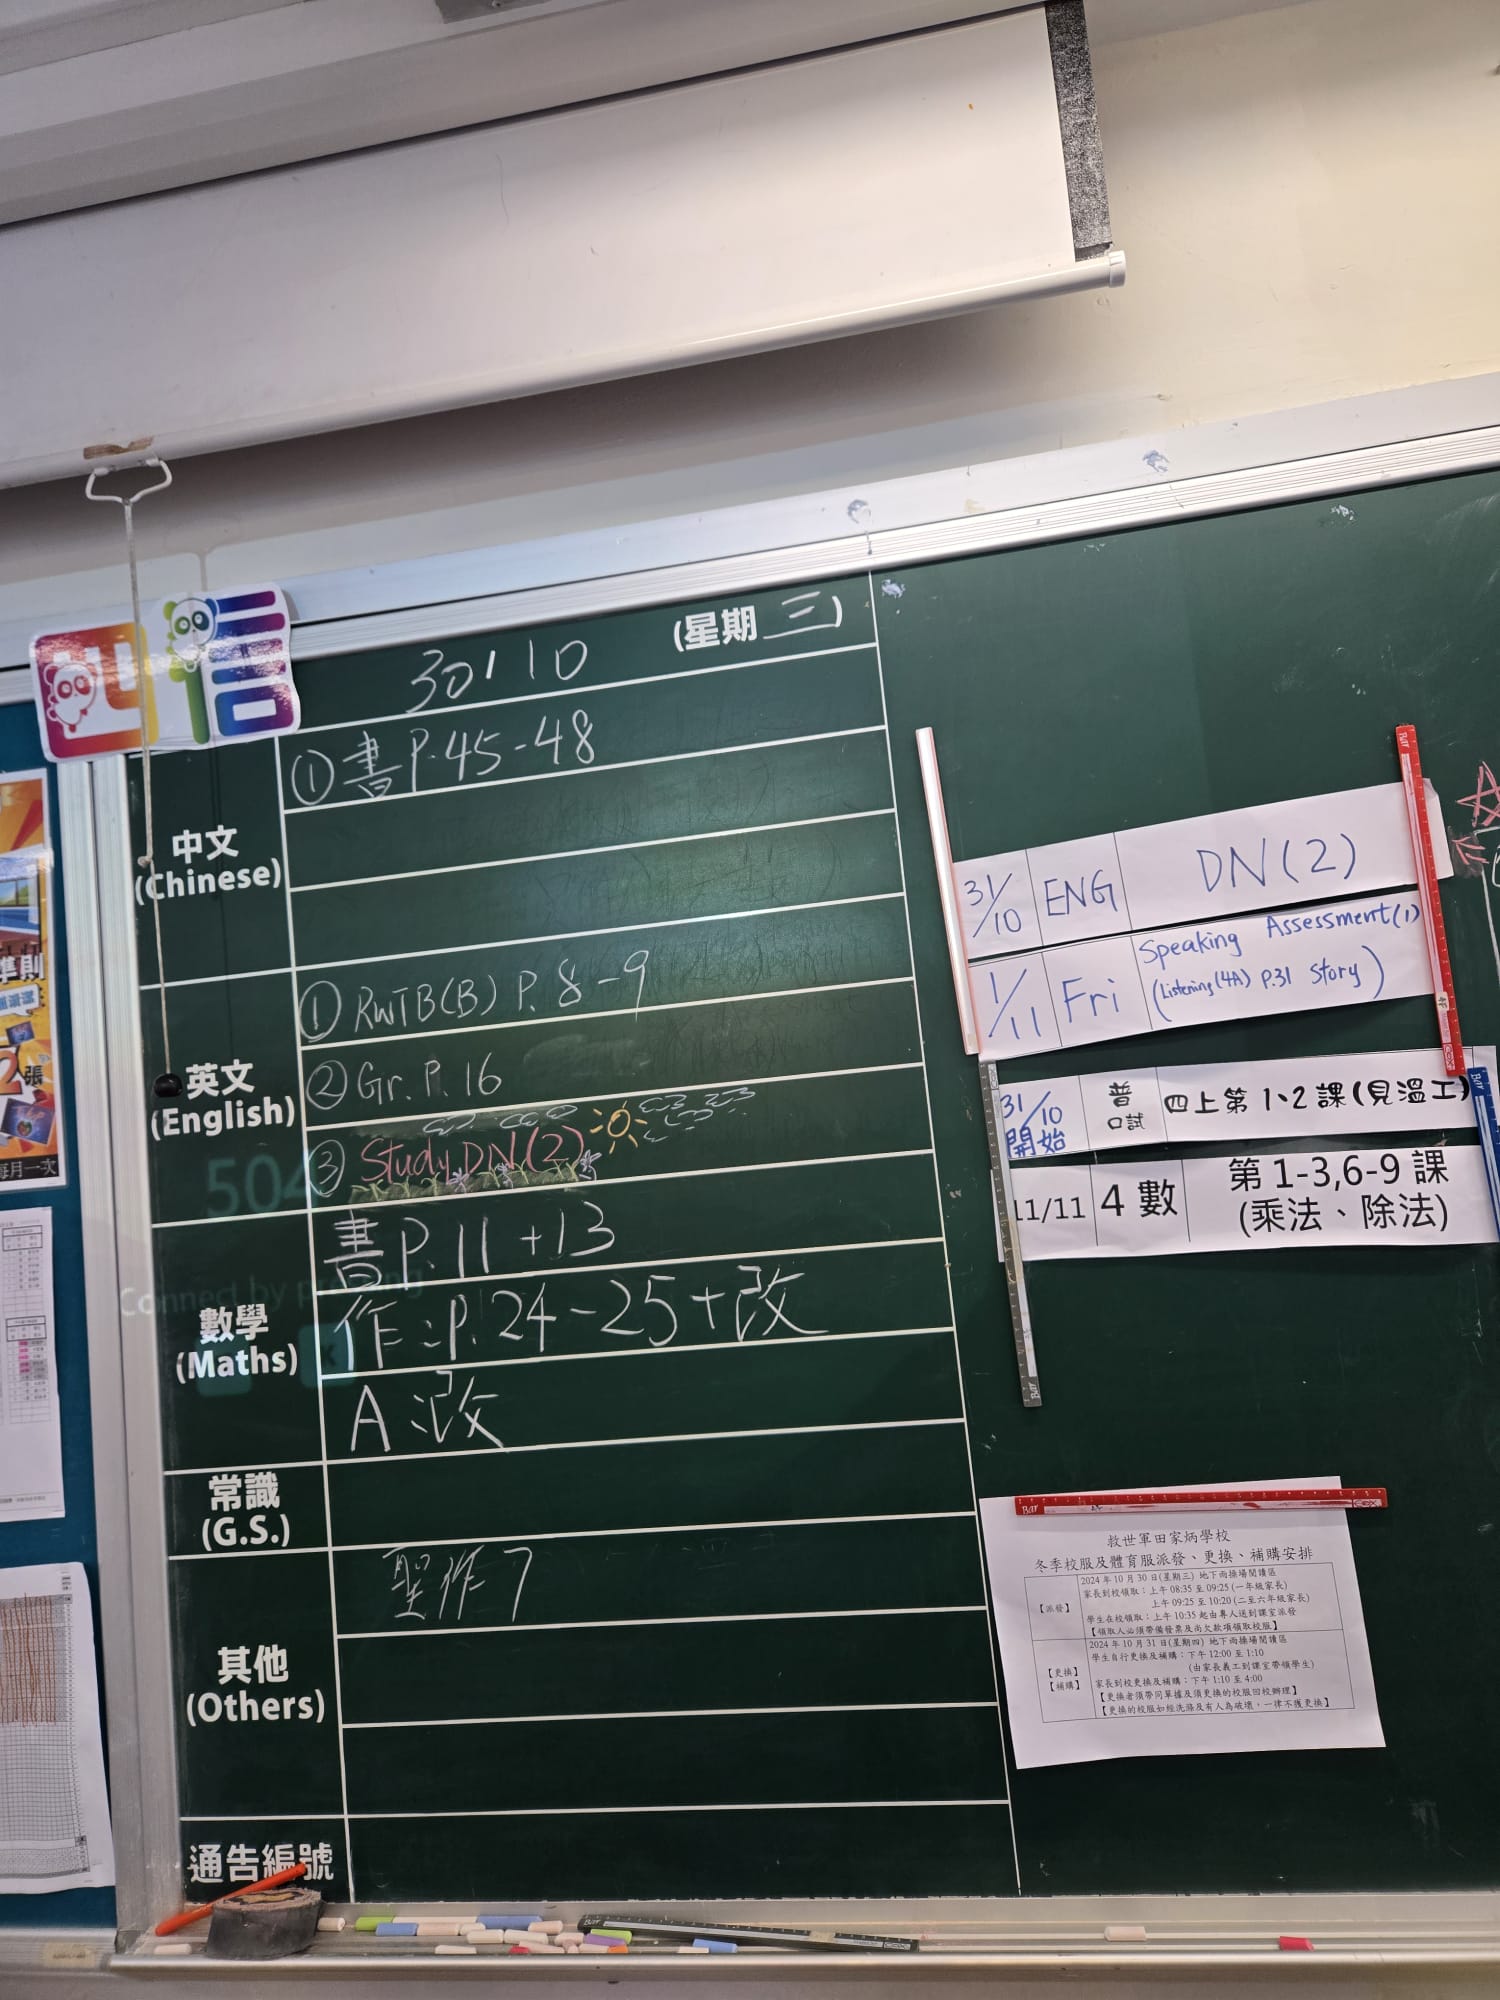 四信
30/10 (星期三)
中文
(Chinese)
①書P.45-48
英文
(English)
①RWTB(B) P. 8-9
②Gr. P. 16
③Study DN(2)
504
數學
(Maths)
書P.11+13
Connect by pressing
作:P. 24-25+改
A:改
常識
(G.S.)
其他
(Others)
聖作7
通告編號
31/10 ENG DN(2)
1/11 Fri Speaking Assessment(1)
(Listening(4A) P.31 story)
31/10 開始 普 口試 四上第1、2課(見溫工)
11/11 4數 第1-3,6-9課
(乘法、除法)
救世軍田家炳學校
冬季校服及體育服派發、更換、補購安排
【派發】
2024年10月30日(星期三) 地下雨操場閱讀區
家長到校領取:上午08:35至09:25(一年級家長)
上午09:25至10:20(二至六年級家長)
學生在校領取:上午10:35起由專人送到課室派發
【領取人必須帶備發票及尚欠款項領取校服】
【更換】
【補購】
2024年10月31日(星期四) 地下雨操場閱讀區
學生自行更換及補購:下午12:00至1:10
(由家長義工到課室帶領學生)
家長到校更換及補購:下午1:10至4:00
【更換者須帶同單據及須更換的校服回校辦理】
【更換的校服如經洗滌及有人為破壞,一律不獲更換】
準則
張
每月一次